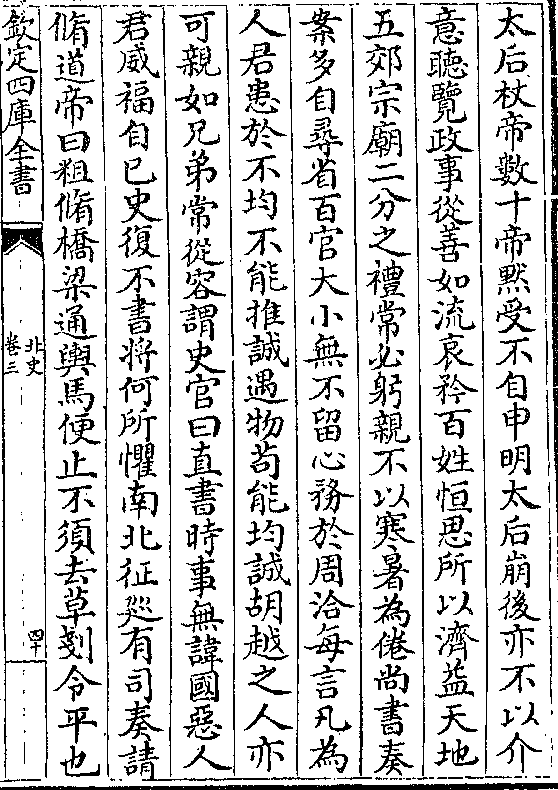 太后杖帝數十帝黙受不自申明太后崩後亦不以介
意聽覽政事從善如流哀矜百姓恒思所以濟益天地
五郊宗廟二分之禮常必躬親不以寒暑為倦尚書奏
案多自尋省百官大小無不留心務於周洽每言凡為
人君患於不均不能推誠遇物苟能均誠胡越之人亦
可親如兄弟常從容謂史官曰直書時事無諱國惡人
君威福自已史復不書將何所懼南北征廵有司奏請
脩道帝曰粗脩橋梁通輿馬便止不須去草剗令平也
欽定四庫全書
北史
卷三
四十